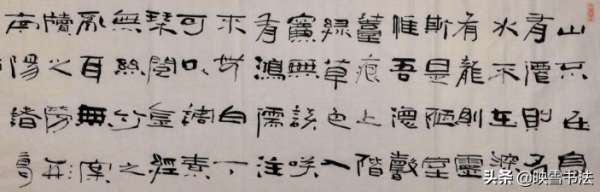 山不在高
有僊則名
水不在深
有龍則靈
斯是陋室
惟吾德馨
苔痕上階
綠草色入
簾青談咲
有鴻儒往
來無白丁
可以調素
琴閱金經
無絲竹之
亂耳無案
牘之勞形
南陽諸葛
头条 @映雪书法